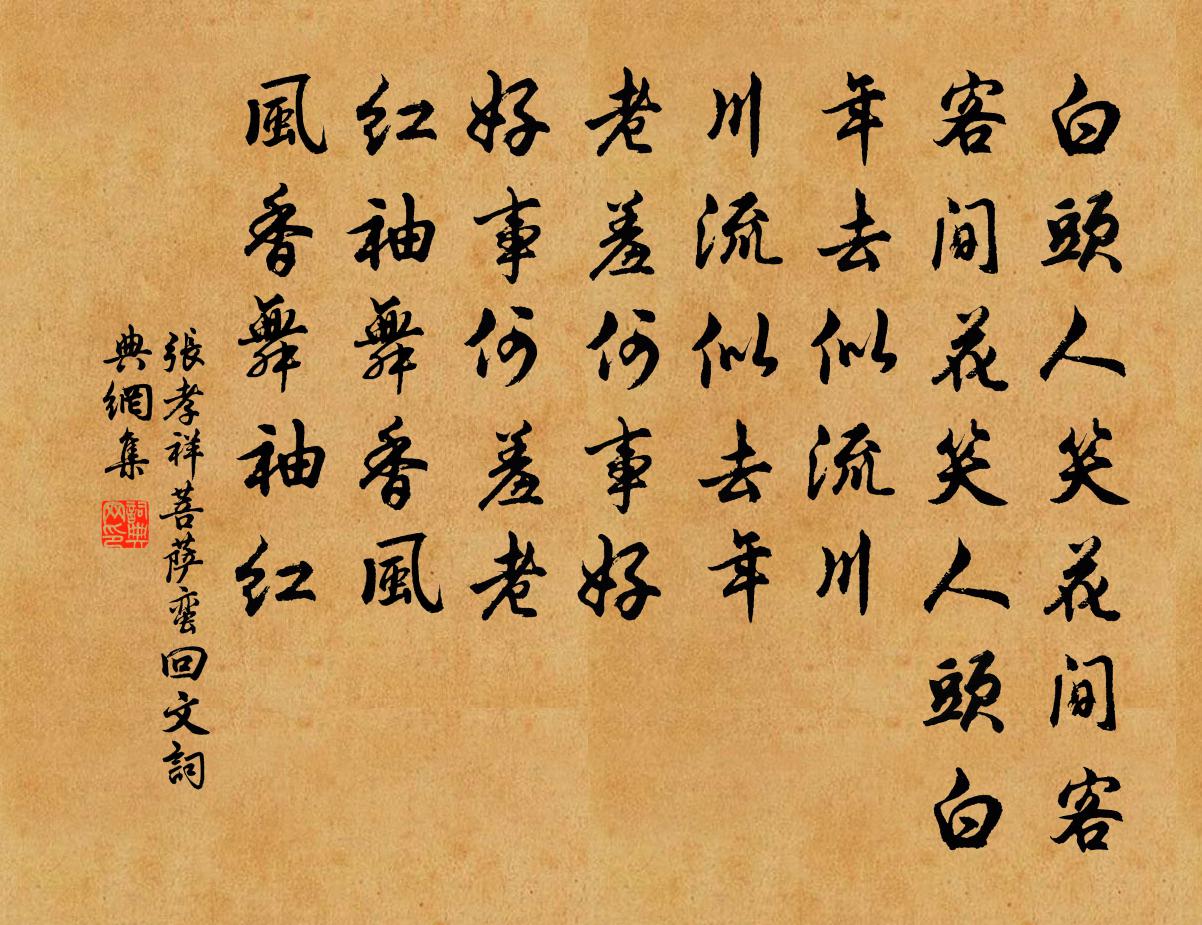 白頭人笑花間客
客間花笑人頭白
年去似流川
川流似去年
老羞何事好
好事何羞老
紅袖舞香風
風香舞袖紅
張孝祥菩薩蛮回文詞
典網集
詞典网印